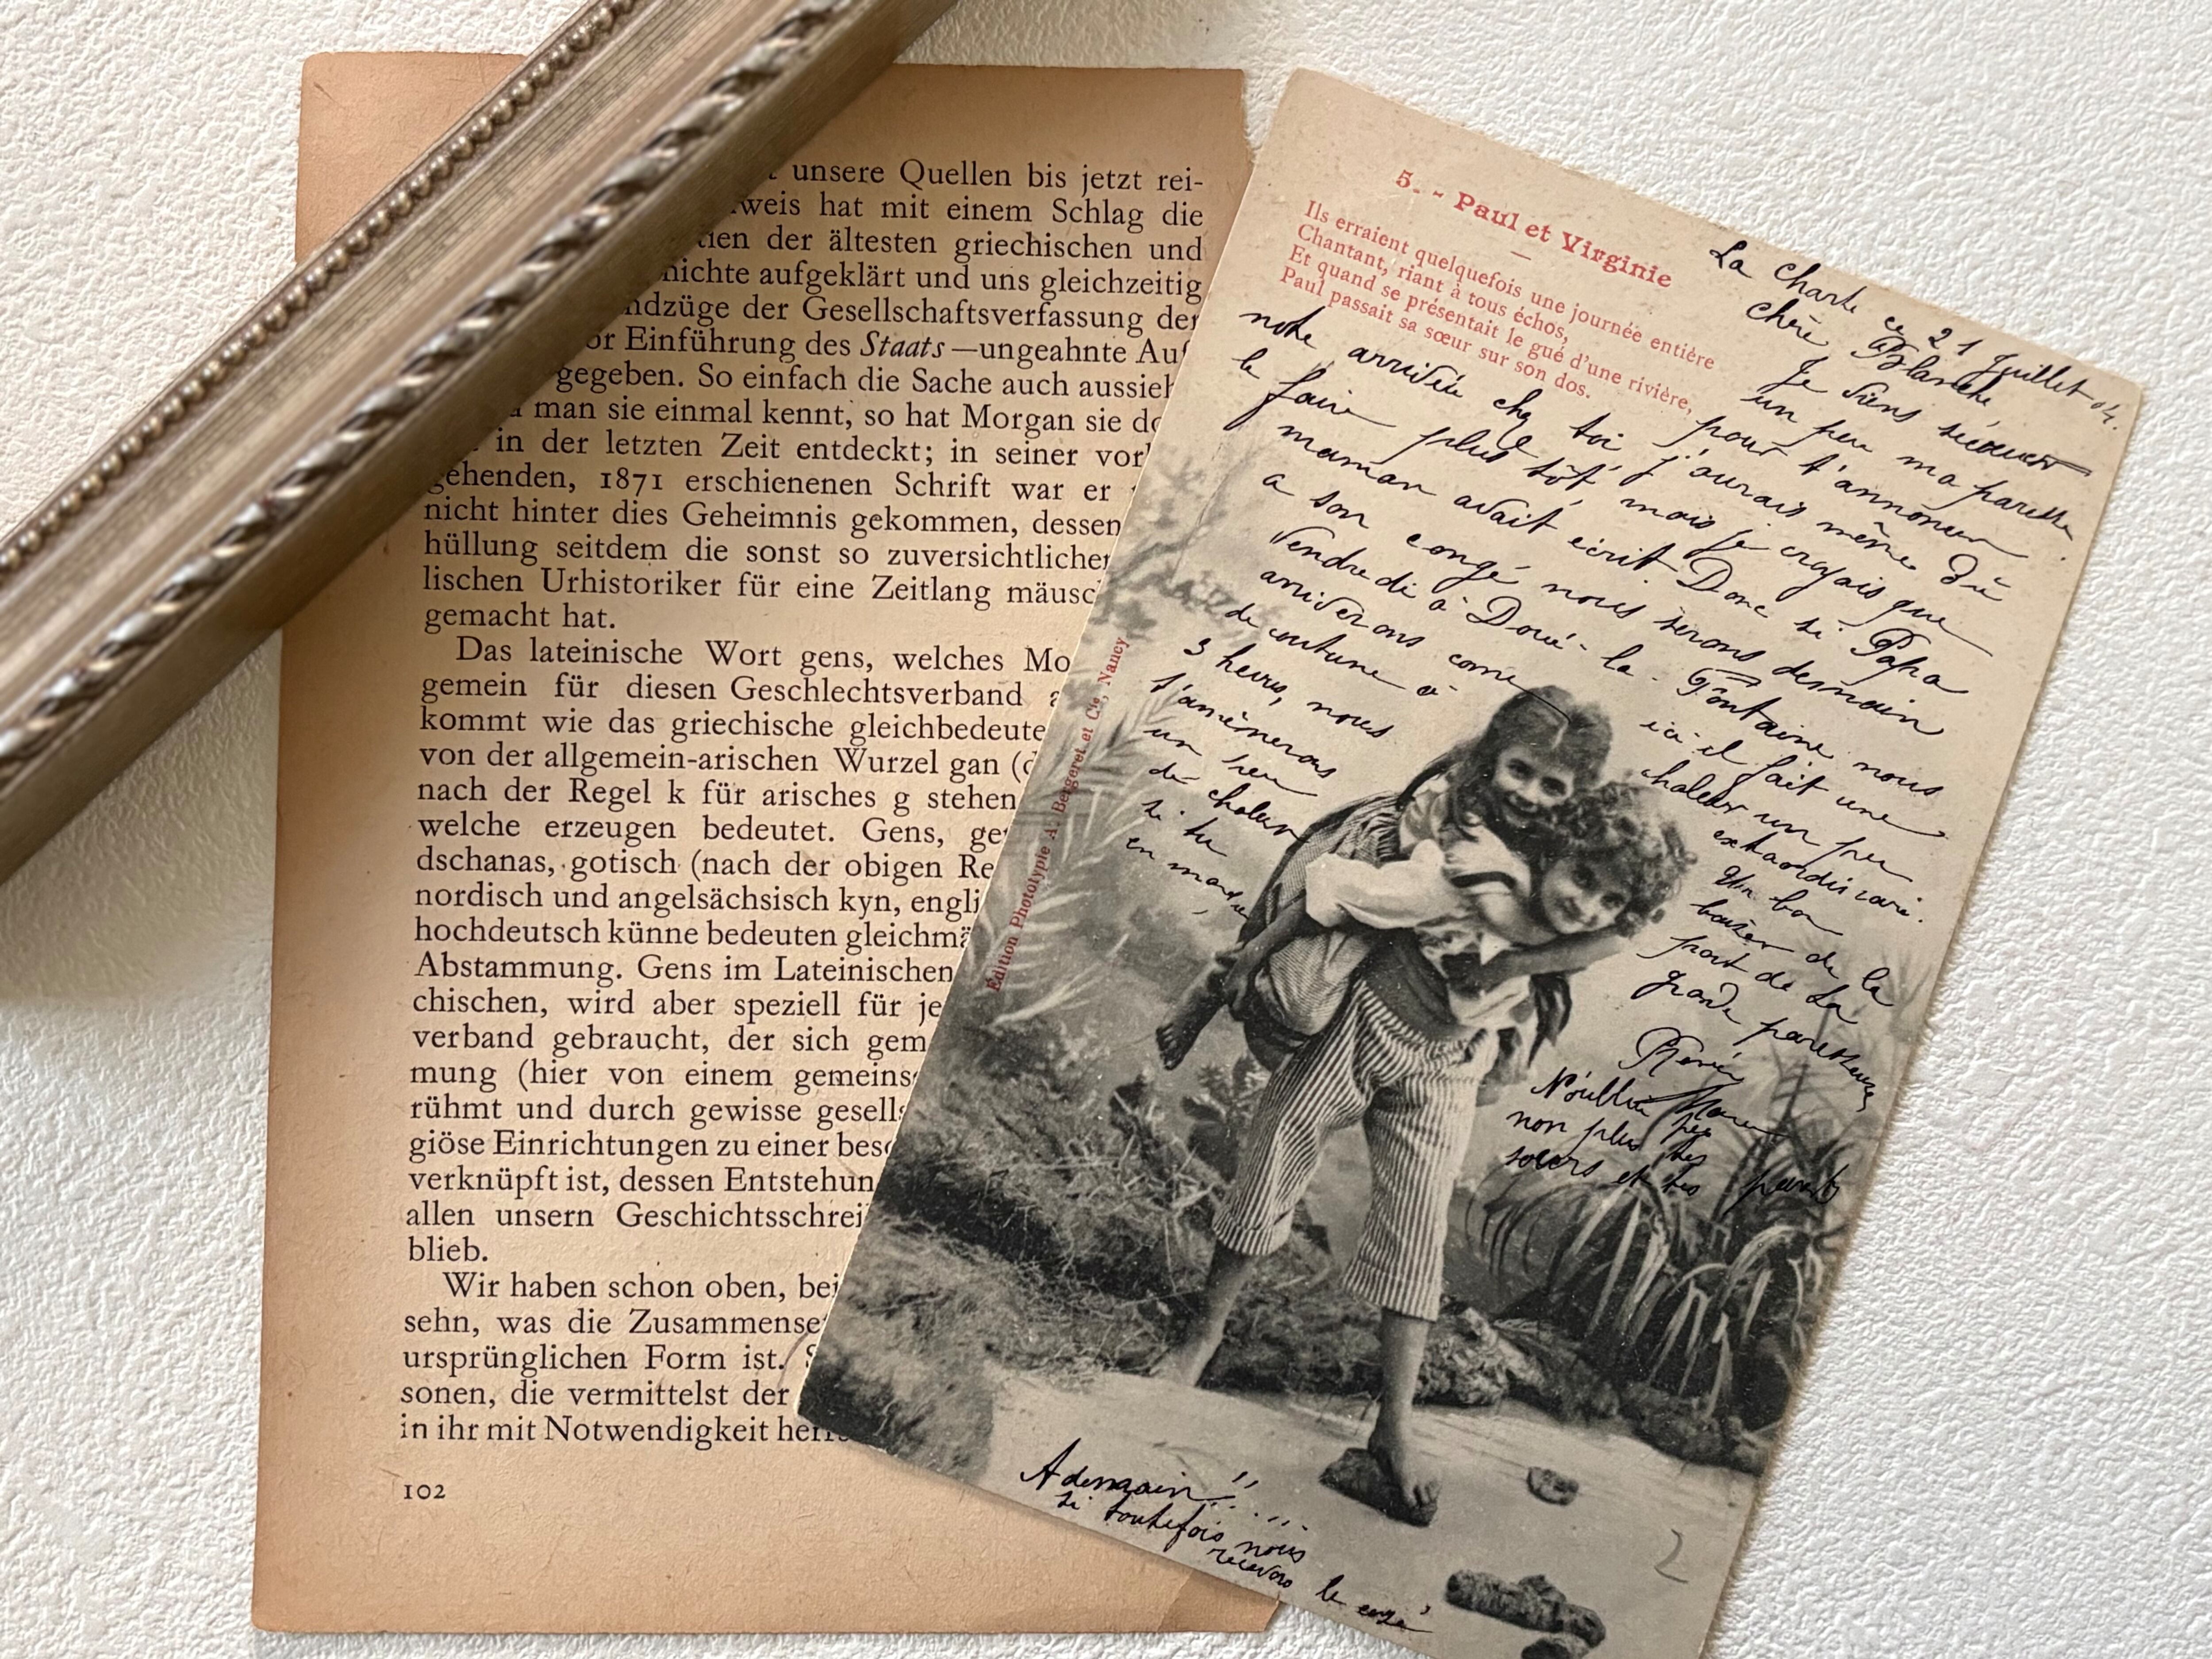 unsere Quellen bis jetzt rei-
weis hat mit einem Schlag die
tien der ältesten griechischen und
hichte aufgeklärt und uns gleichzeitig
ndzüge der Gesellschaftsverfassung der
or Einführung des Staats—ungeahnte Auf
gegeben. So einfach die Sache auch aussieh
man sie einmal kennt, so hat Morgan sie do
in der letzten Zeit entdeckt; in seiner vorh
gehenden, 1871 erschienenen Schrift war er
nicht hinter dies Geheimnis gekommen, dessen
hüllung seitdem die sonst so zuversichtlichen
lischen Urhistoriker für eine Zeitlang mäusc
gemacht hat.
Das lateinische Wort gens, welches Mo
gemein für diesen Geschlechtsverband a
kommt wie das griechische gleichbedeute
von der allgemein-arischen Wurzel gan (d
nach der Regel k für arisches g stehen
welche erzeugen bedeutet. Gens, ge
dschanas, gotisch (nach der obigen Re
nordisch und angelsächsisch kyn, engli
hochdeutsch künne bedeuten gleichmä
Abstammung. Gens im Lateinischen
chischen, wird aber speziell für je
verband gebraucht, der sich gem
mung (hier von einem gemeins
rühmt und durch gewisse gesells
giöse Einrichtungen zu einer beso
verknüpft ist, dessen Entstehun
allen unsern Geschichtsschrei
blieb.
Wir haben schon oben, bei
sehn, was die Zusammense
ursprünglichen Form ist. S
sonen, die vermittelst der
in ihr mit Notwendigkeit herrs
102
5. - Paul et Virginie
Ils erraient quelquefois une journée entière
Chantant, riant à tous échos,
Et quand se présentait le gué d'une rivière,
Paul passait sa sœur sur son dos.
Édition Photolypie A. Bergeret et Cie, Nancy
La Charte ce 21 Juillet 04.
Chère Blanche
Je viens secouer
un peu ma paresse
pour t'annoncer
notre arrivée chez toi j'aurais même dû
le faire plus tôt, mais je croyais que
maman avait écrit Donc si Papa
a son congé nous serons demain
Vendredi à Doué-la-Fontaine nous
arriverons come
de coutume à
3 heures, nous
t'amènerons
un peu
de chaleur
si tu
en manques
ici il fait une
chaleur un peu
extraordinaire.
Un bon
baiser de la
part de la
grande paresseuse
Renée
N'oublie pas
non plus tes
soeurs et tes parents
A demain!!...
si toutefois nous
recevons le congé
2